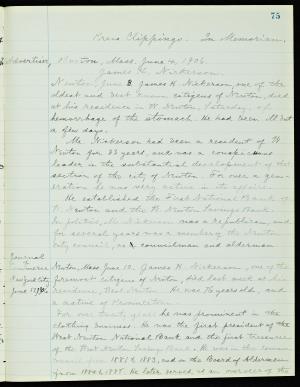 75
Press Clippings. In Memoriam.
Advertiser, Boston, Mass. June 4, 1906.
James H. Nickerson.
Newton, June 3. James H. Nickerson one of the
oldest and best known citizens of Newton, died
at his residence in W. Newton, Saturday, of
hemorrhage of the stomach. He had been ill but
a few days.
Mr. Nickerson had been a resident of W.
Newton for 33 years, and was a conspicuous
leader in the substantial development of that
section of the city of Newton. For over a gen-
eration he was very active in its affairs.
He established the First National Bank of
W. Newton and the W. Newton Savings Bank.
In politics, Mr. Nickerson was a republican and
for several years was a member of the Newton
city council, as councilman and alderman
Journal
Commerce
New York City
June
Newton, Mass June 10. James H. Nickerson, one of the
foremost citizens of Newton, died last week at his
residence, West Newton. He was 76 years old, and
a native of
For over twenty years he was prominent in the
clothing business. He was the first president of the
West Newton National Bank and the first treasurer
of the West Newton Savings Bank. He was in the common
council from 1881 & 1883, and on the Board of Aldermen
from 1884 He later served as an overseer of the